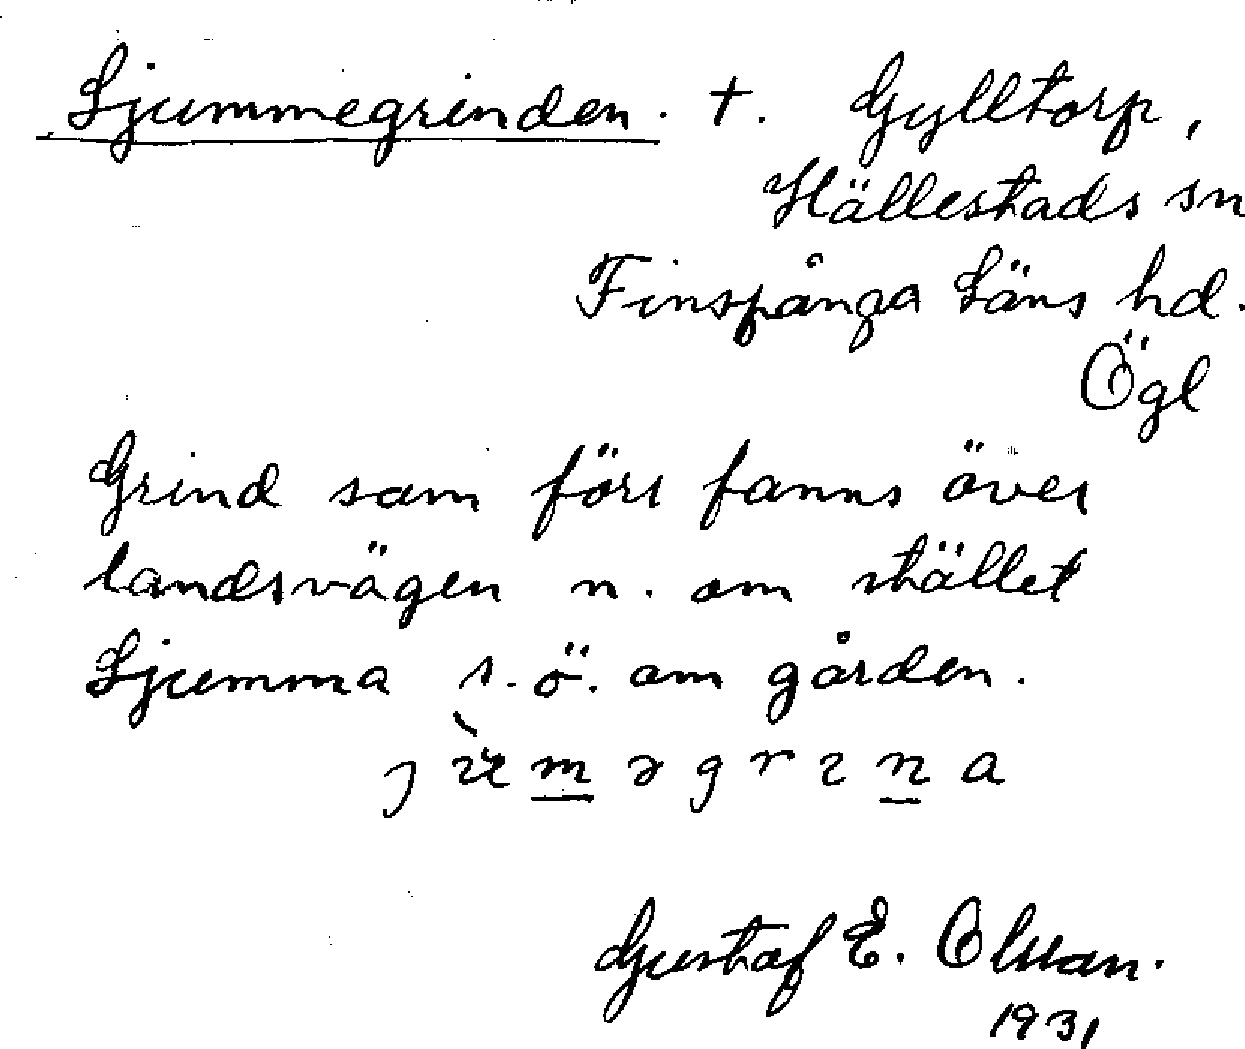 Ljummegrinden. †. Gylltorp,
Hällestads sn
Finspånga Läns hd.
Ögl
Grind som förr fanns över
landsvägen n. om stället
Ljumma s.ö. om gården.
Gustaf E. Olsson.
1931